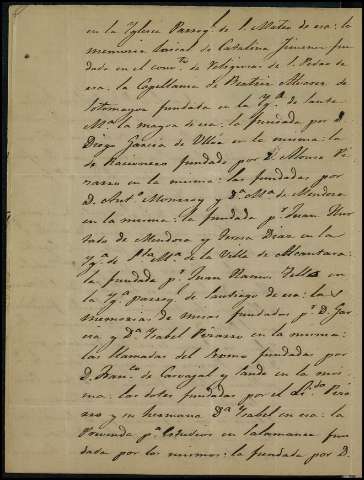 en la Yglesia Parroql. de S. Mateo de esa: la
memoria Laical de Catalina Jimenez fun-
dada en el convto. de Religiosas de S. Pedro de
esa: la Capellania de Beatriz Alvarez de
Sotomayor fundada en la Yga. de Santa
Ma. la mayor de esa: la fundada por D.
Diego Garcia de Ulloa en la misma: la
de Racionero fundada por D. Alonso Pi-
zarro en la misma: las fundadas por
D. Anto. Monrroy y Da. Ma. de Mendoza
en la misma: la fundada pr. Juan Hur-
tado de Mendoza y Teresa Diaz en la
Yga. de Sta. Ma. de la Villa de Alcantara:
la fundada pr. Juan Ramo. Tello en
la Yga. parroql. de Santiago de esa: las
memorias de misas fundadas pr. D. Gar-
cia y Da. Ysabel Pizarro en la misma:
las llamadas del fundadas por
D. Franco. de Carvajal y Sande en la mis-
ma: las dotes fundadas por el Lizdo. Piza-
rro y su hermana Da. Ysabel en esa: la
Prevenda pa. Estudios en Salamanca fun-
dada por los mismos: la fundada por D.